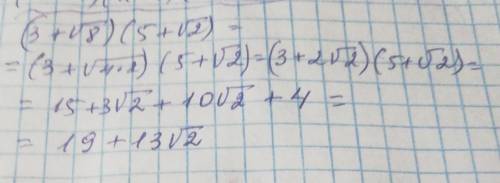 (3+√8)(5+√2) =
= (3+√4·2)(5+√2) = (3+2√2)(5+√2) =
= 15+3√2+10√2+4 =
= 19+13√2